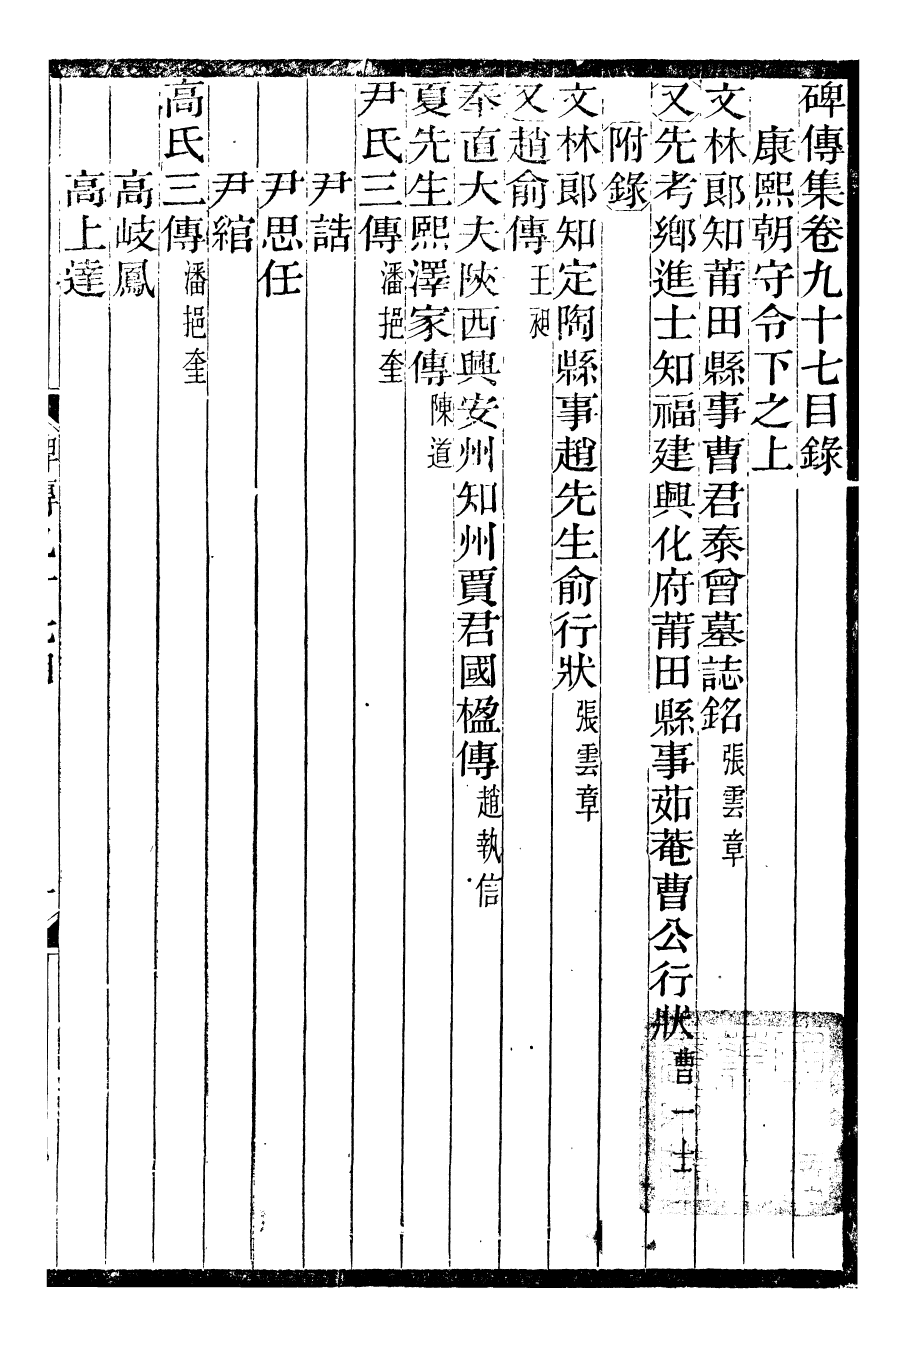 碑傳集卷九十七目錄
康熙朝守令下之上
文林郎知莆田縣事曹君泰曾墓誌銘 張雲章
又先考鄉進士知福建興化府莆田縣事茹菴曹公行狀 曹一士
附錄
文林郎知定陶縣事趙先生俞行狀 張雲章
又趙俞傳 王昶
奉直大夫陝西興安州知州賈君國楹傳 趙執信
夏先生熙澤家傳 陳道
尹氏三傳 潘挹奎
尹誥
尹思任
尹綰
高氏三傳 潘挹奎
高岐鳳
高上達